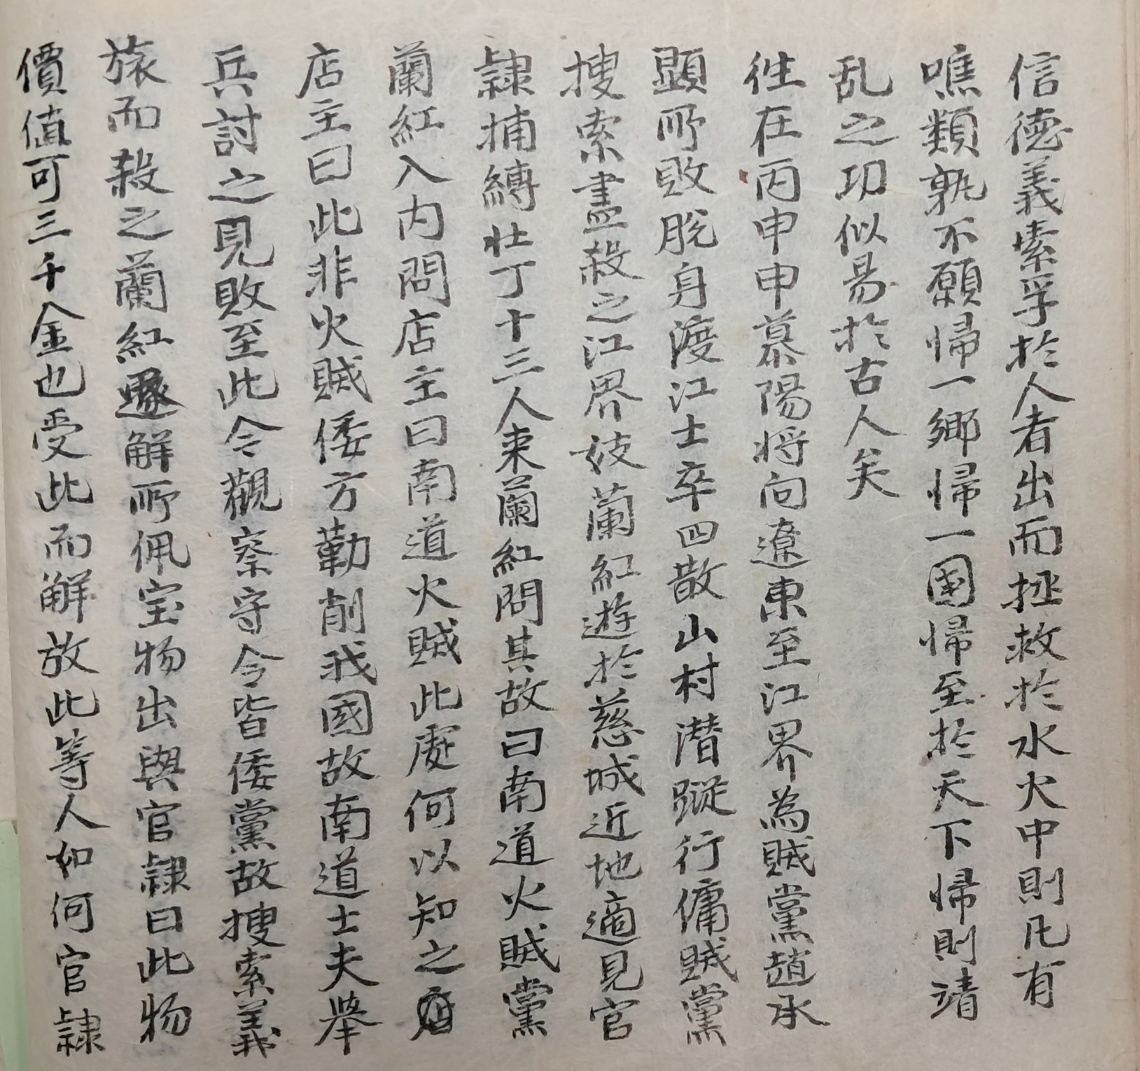 信德義素孚於人者出而拯救於水火中則凡有
噍類孰不願帰一鄉帰一国帰至於天下帰則靖
乱之功似易於古人矣
徃在丙申申慕陽将向遼東至江界為賊黨趙承
顕所敗脫身渡江士卒四散山村潜蹤行傭賊黨
搜索盡殺之江界妓蘭紅遊於慈城近地適見官
隷捕縛壮丁十三人来蘭紅問其故曰南道火賊黨
蘭紅入内問店主曰南道火賊此處何以知之
店主曰此非火賊倭方勒削我國故南道士夫舉
兵討之見敗至此今觀察守令皆倭黨故搜索義
旅而殺之蘭紅遂解所佩宝物出與官隷曰此物
價値可三千金也受此而解放此等人如何官隷